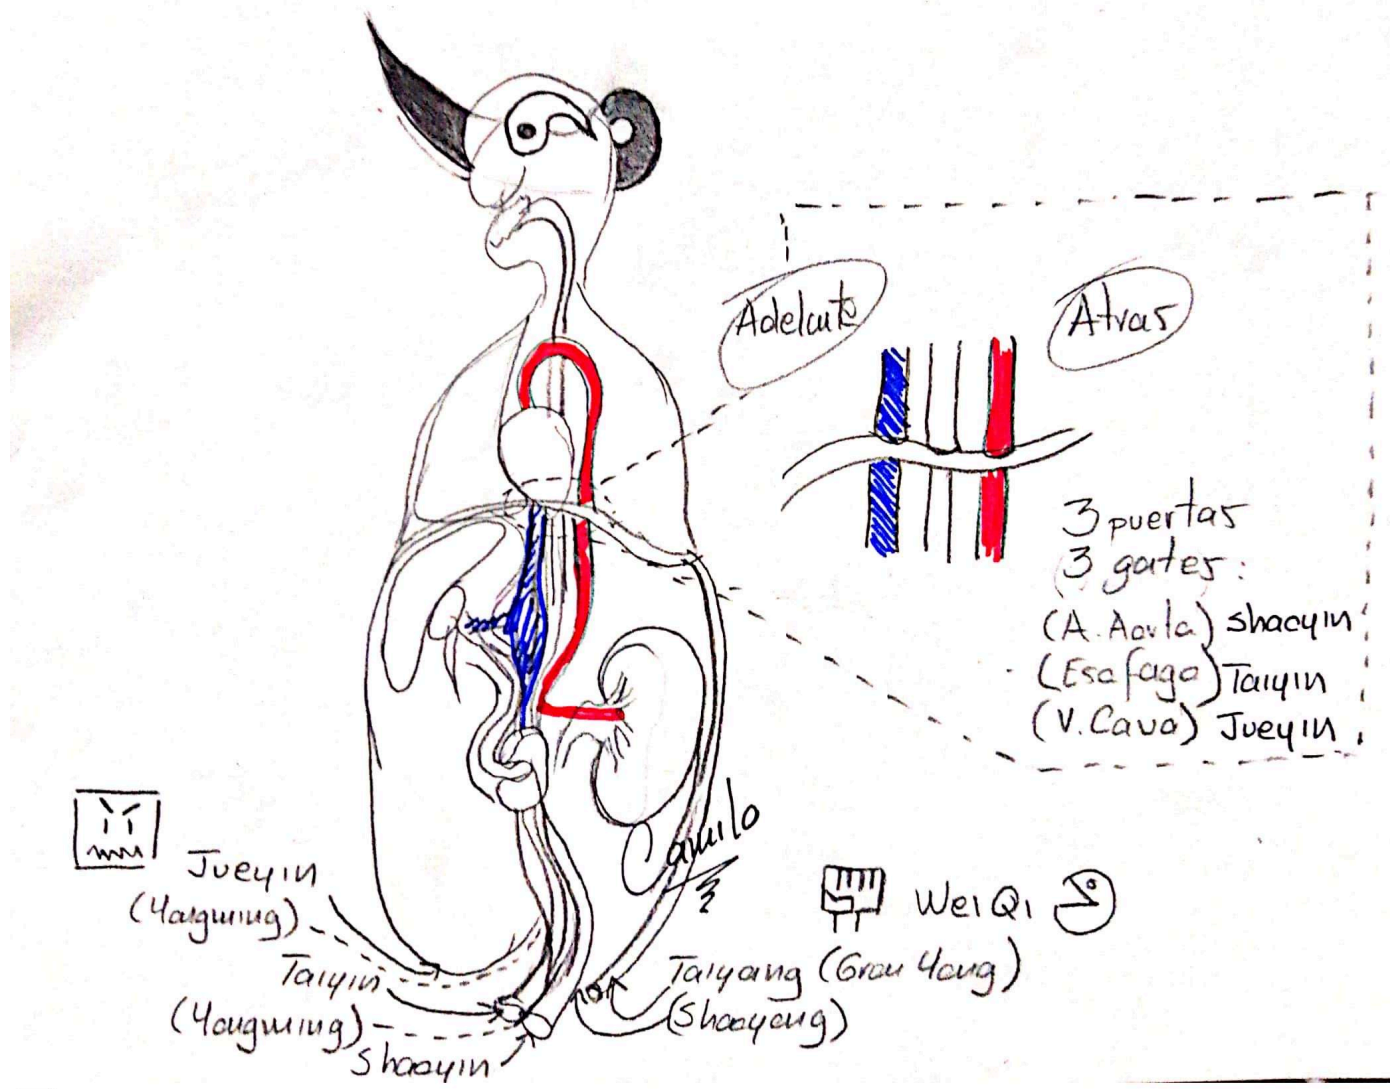 Adelante
Atras
3 puertas
3 gates:
(A. Aorta) Shaoyin
(Esofago) Taiyin
(V. Cava) Jueyin
Camilo
Jueyin
(Yangming)
Taiyin
(Yangming)
Shaoyin
Wei Qi
Taiyang (Gran Yang)
(Shaoyang)